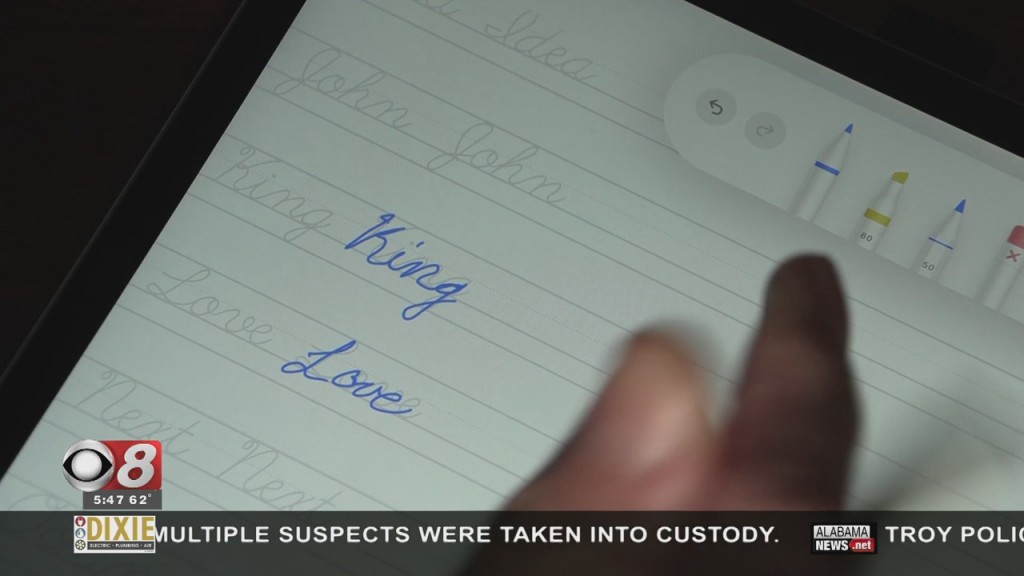 Idea
John John
King King
Love Love
Next Next
80
50
8
5:47 62°
DIXIE
ELECTRIC • PLUMBING • AIR
MULTIPLE SUSPECTS WERE TAKEN INTO CUSTODY.
ALABAMA
NEWS.net
TROY POLIC